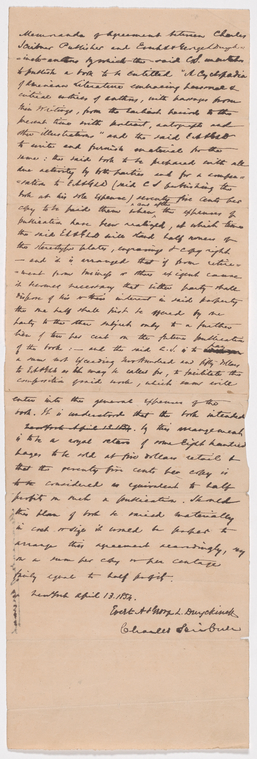 Memoranda of agreement between Charles
Scribner Publisher and Evert & George Duyckinck
authors by which the said CS undertakes
to publish a book to be entitled "A Cyclopædia
of American Literature embracing personal &
critical notices of authors, with passages from
their Writings, from the earliest period to the
present time with portraits, autographs and
other illustrations" and the said E & GLD
to write and furnish material for the
same: the said book to be prepared with all
due activity by both parties and for a compen-
sation to E & GLD (said CS publishing the
book at his sole expense) seventy five cents per
copy to be paid them when the expenses of
publication have been realized, at which time
the said E & GLD will stand half owners of
the stereotype plates, engravings & copy right
— and it is arranged that if from retire-
ment from business or other exigent cause
it becomes necessary that either party shall
dispose of his or their interest in said property
the one half shall first be offered by one
party to the other subject only to a
of ten per cent on the future publication
of the book: — and the said CS is to
a sum not exceeding five hundred and fifty dollars
to E & GLD as may be called for, to facilitate the
composition of said work, which sum will
enter into the general expenses of the
book. It is understood that the book intended
by this arrangement
is to be a royal octavo of some eight hundred
pages to be sold at five dollars retail &
that the seventy five cents per copy is
to be considered as equivalent to half
profit on such a publication. Should
this plan of book be varied materially
in cost or size it would be proper to
arrange this agreement accordingly, say
on a sum per copy or per centage
fairly equal to half profit.
New York April 13. 1854.
Evert A & George L. Duyckinck
Charles Scribner